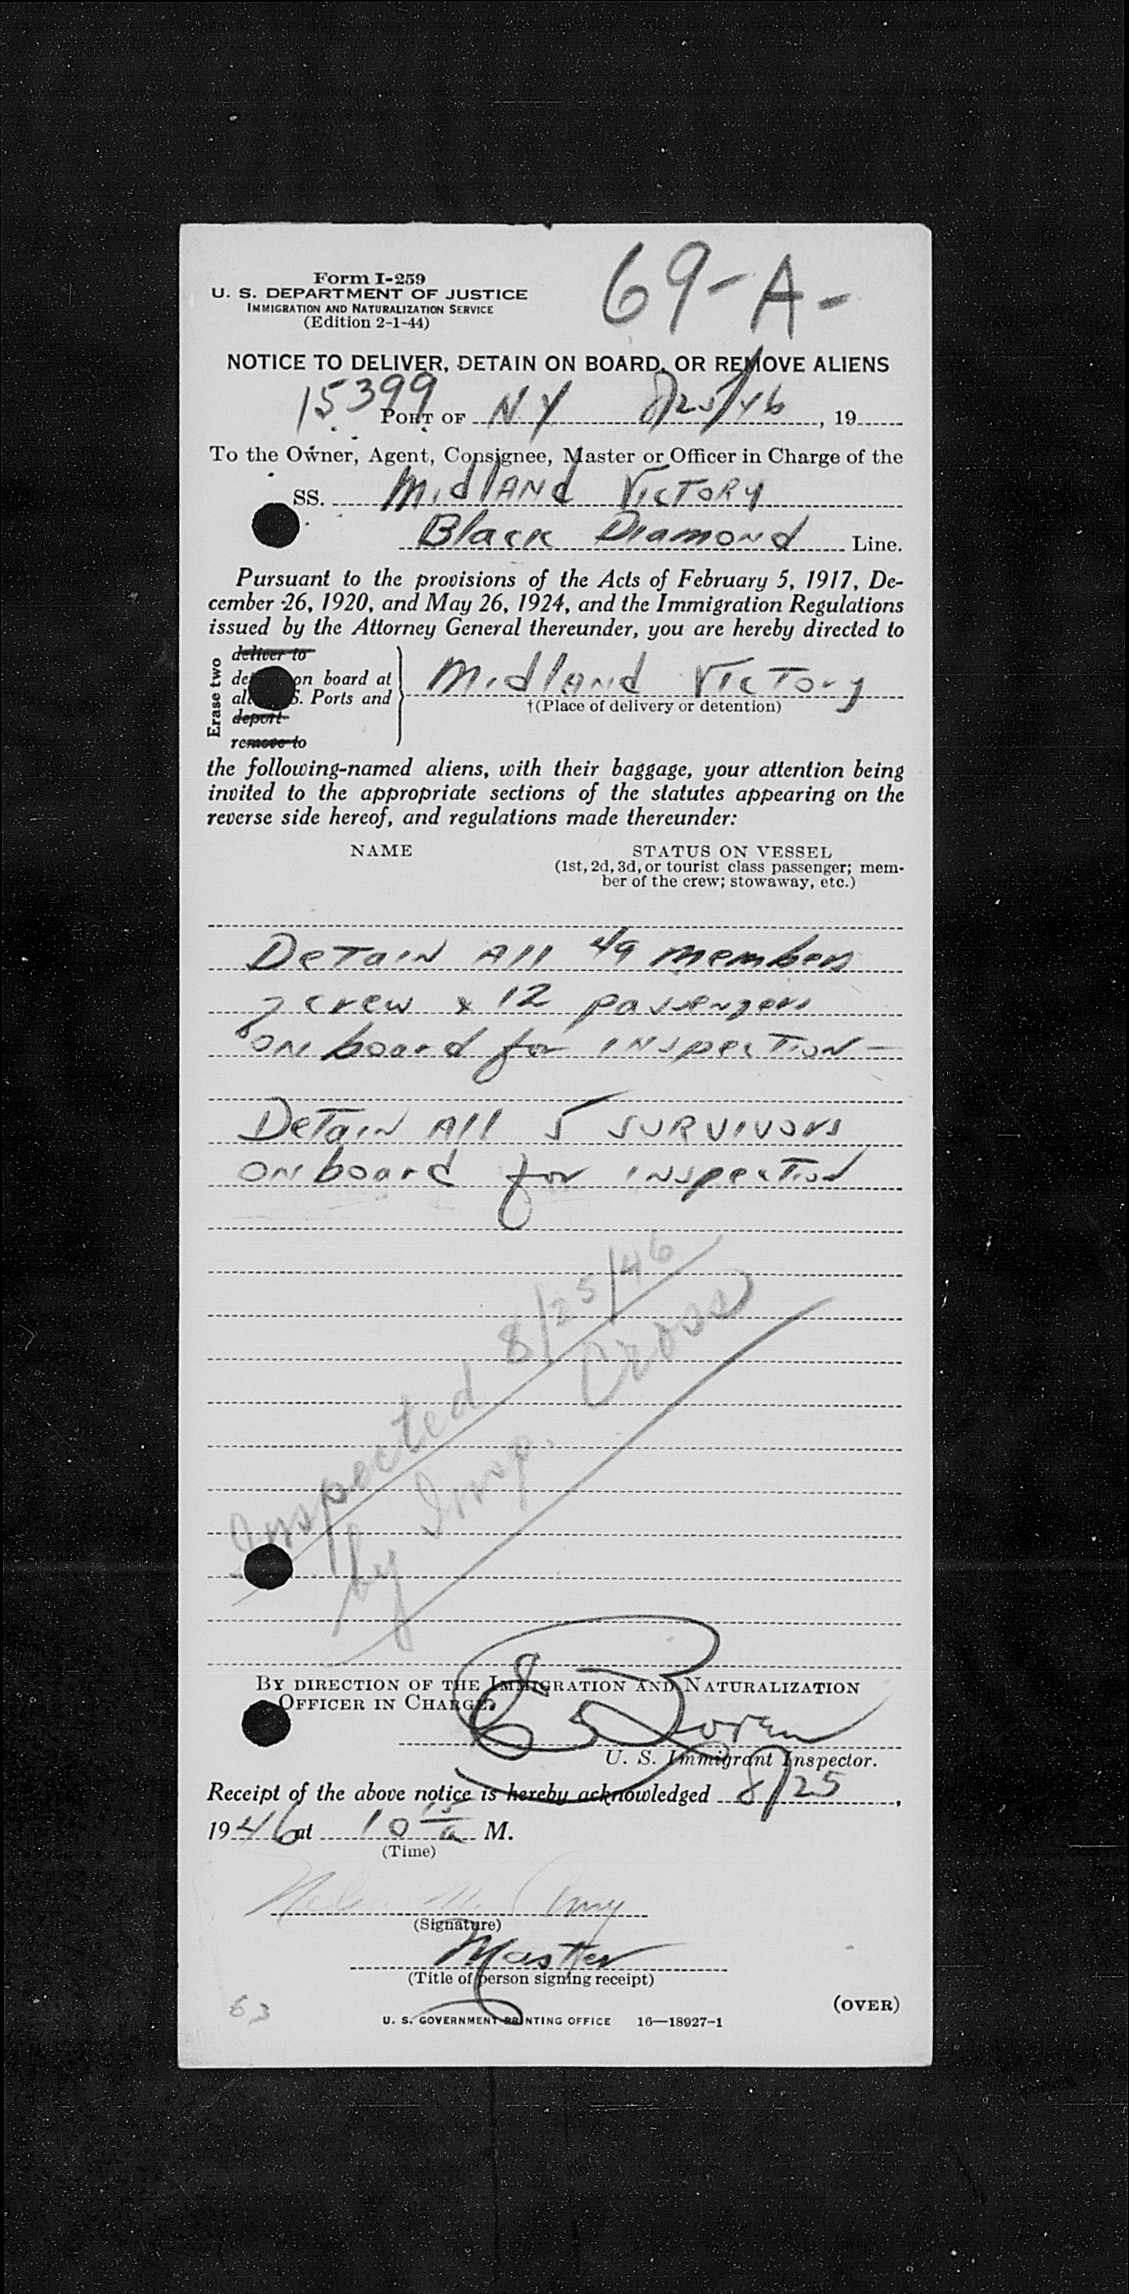 69-A-
Form I-259
U. S. DEPARTMENT OF JUSTICE
IMMIGRATION AND NATURALIZATION SERVICE
(Edition 2-1-44)
NOTICE TO DELIVER, DETAIN ON BOARD, OR REMOVE ALIENS
15399
PORT OF NY 8/25/46, 19
To the Owner, Agent, Consignee, Master or Officer in Charge of the
SS. Midland Victory
Black Diamond Line.
Pursuant to the provisions of the Acts of February 5, 1917, De-
cember 26, 1920, and May 26, 1924, and the Immigration Regulations
issued by the Attorney General thereunder, you are hereby directed to
Erase two
deliver to
on board at
Ports and
deport
remove to
Midland Victory
†(Place of delivery or detention)
the following-named aliens, with their baggage, your attention being
invited to the appropriate sections of the statutes appearing on the
reverse side hereof, and regulations made thereunder:
NAME STATUS ON VESSEL
(1st, 2d, 3d, or tourist class passenger; mem-
ber of the crew; stowaway, etc.)
Detain All 49 members
of crew & 12 passengers
on board for inspection -
Detain All 5 survivors
on board for inspection
Inspected 8/25/46
by Insp. Cross
BY DIRECTION OF THE IMMIGRATION AND NATURALIZATION
OFFICER IN CHARGE.
U. S. Immigrant Inspector.
Receipt of the above notice is hereby acknowledged 8/25,
1946 at 10 15/a M.
(Time)
(Signature)
Master
(Title of person signing receipt)
63
(OVER)
U. S. GOVERNMENT PRINTING OFFICE 16—18927-1